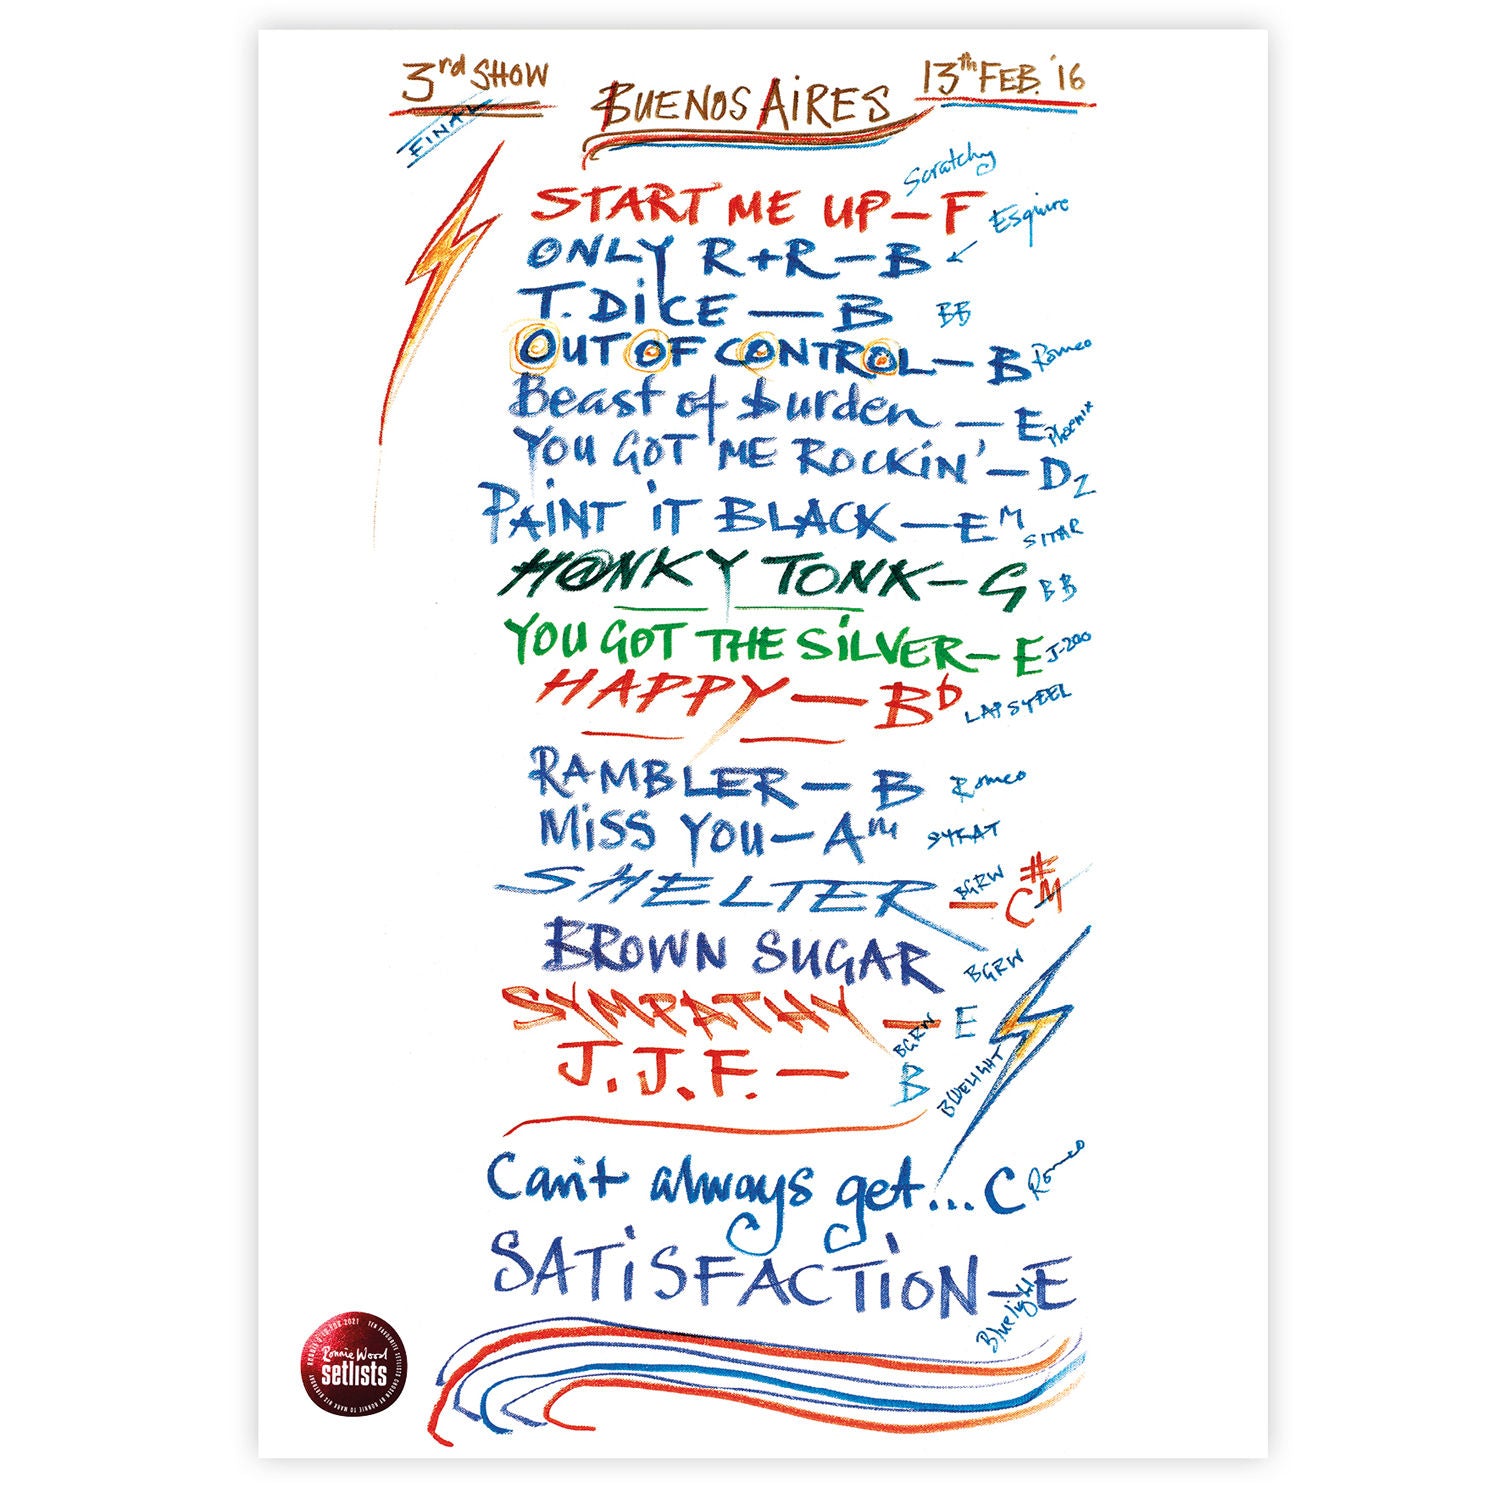 3rd SHOW
FINAL
BUENOS AIRES
13th FEB. '16
Scratchy
START ME UP – F Esquire
ONLY R+R – B ←
T. DiCE — B BB
OUT OF CONTROL – B Romeo
Beast of Burden – E Phoenix
YOU GOT ME ROCKiN' – D Z
PAiNT iT BLACK – EM SITAR
H@NKY TONK – G BB
YOU GOT THE SiLVER – E J-200
HAPPY — Bb LAP STEEL
RAMBLER – B Romeo
MiSS YOU – Am STRAT
SHELTER – C#M BGRW
BROWN SUGAR BGRW
SYMPATHY – E BGRW
J.J.F. — B BLUELIGHT
Can't always get... C Romeo
SATiSFACTiON – E Bluelight
Ronnie Wood
setlists